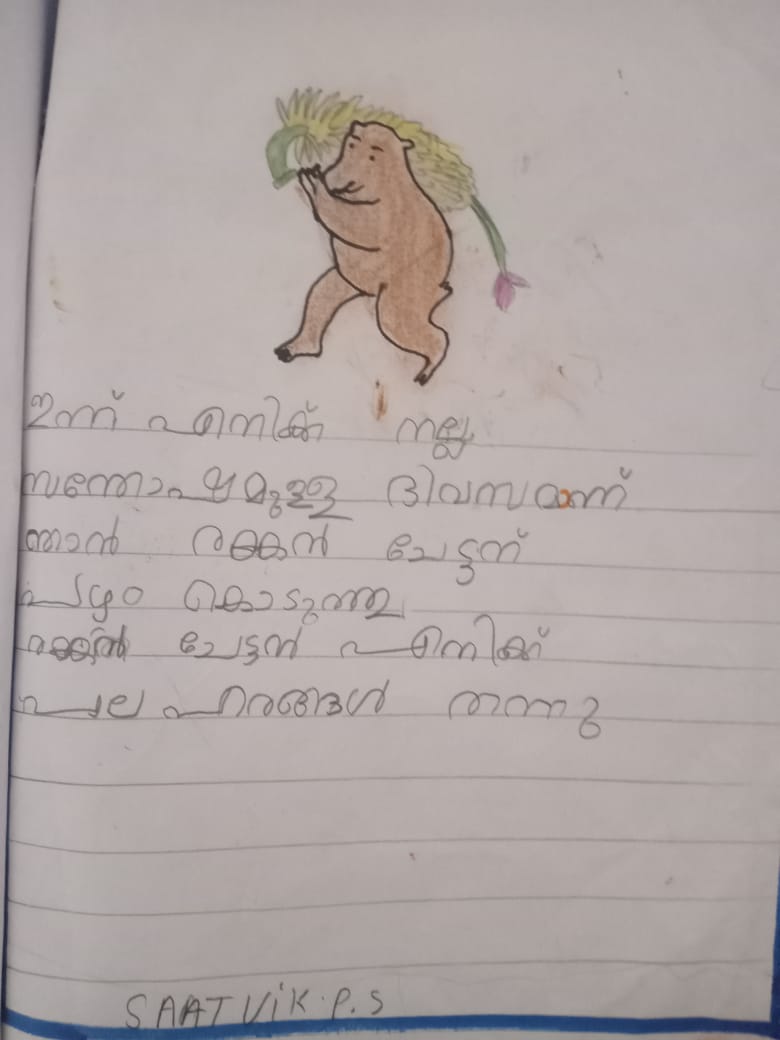 ഇന്ന് എനിക്ക് നല്ല
സന്തോഷമുള്ള ദിവസമാന്ന്
ഞാൻ രക്കൻ ചേട്ടന്
പഴം കൊടുത്തു
ചേട്ടൻ എനിക്ക്
പല ഹാരങ്ങൾ തന്നു
SAATVIK.P.S